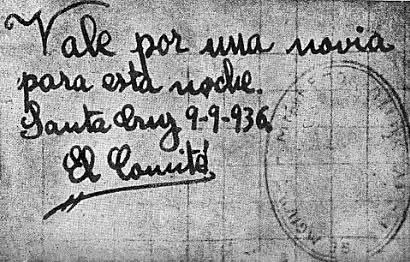 Vale por una novia
para esta noche.
Santa Cruz 9-9-936,
El Comité,